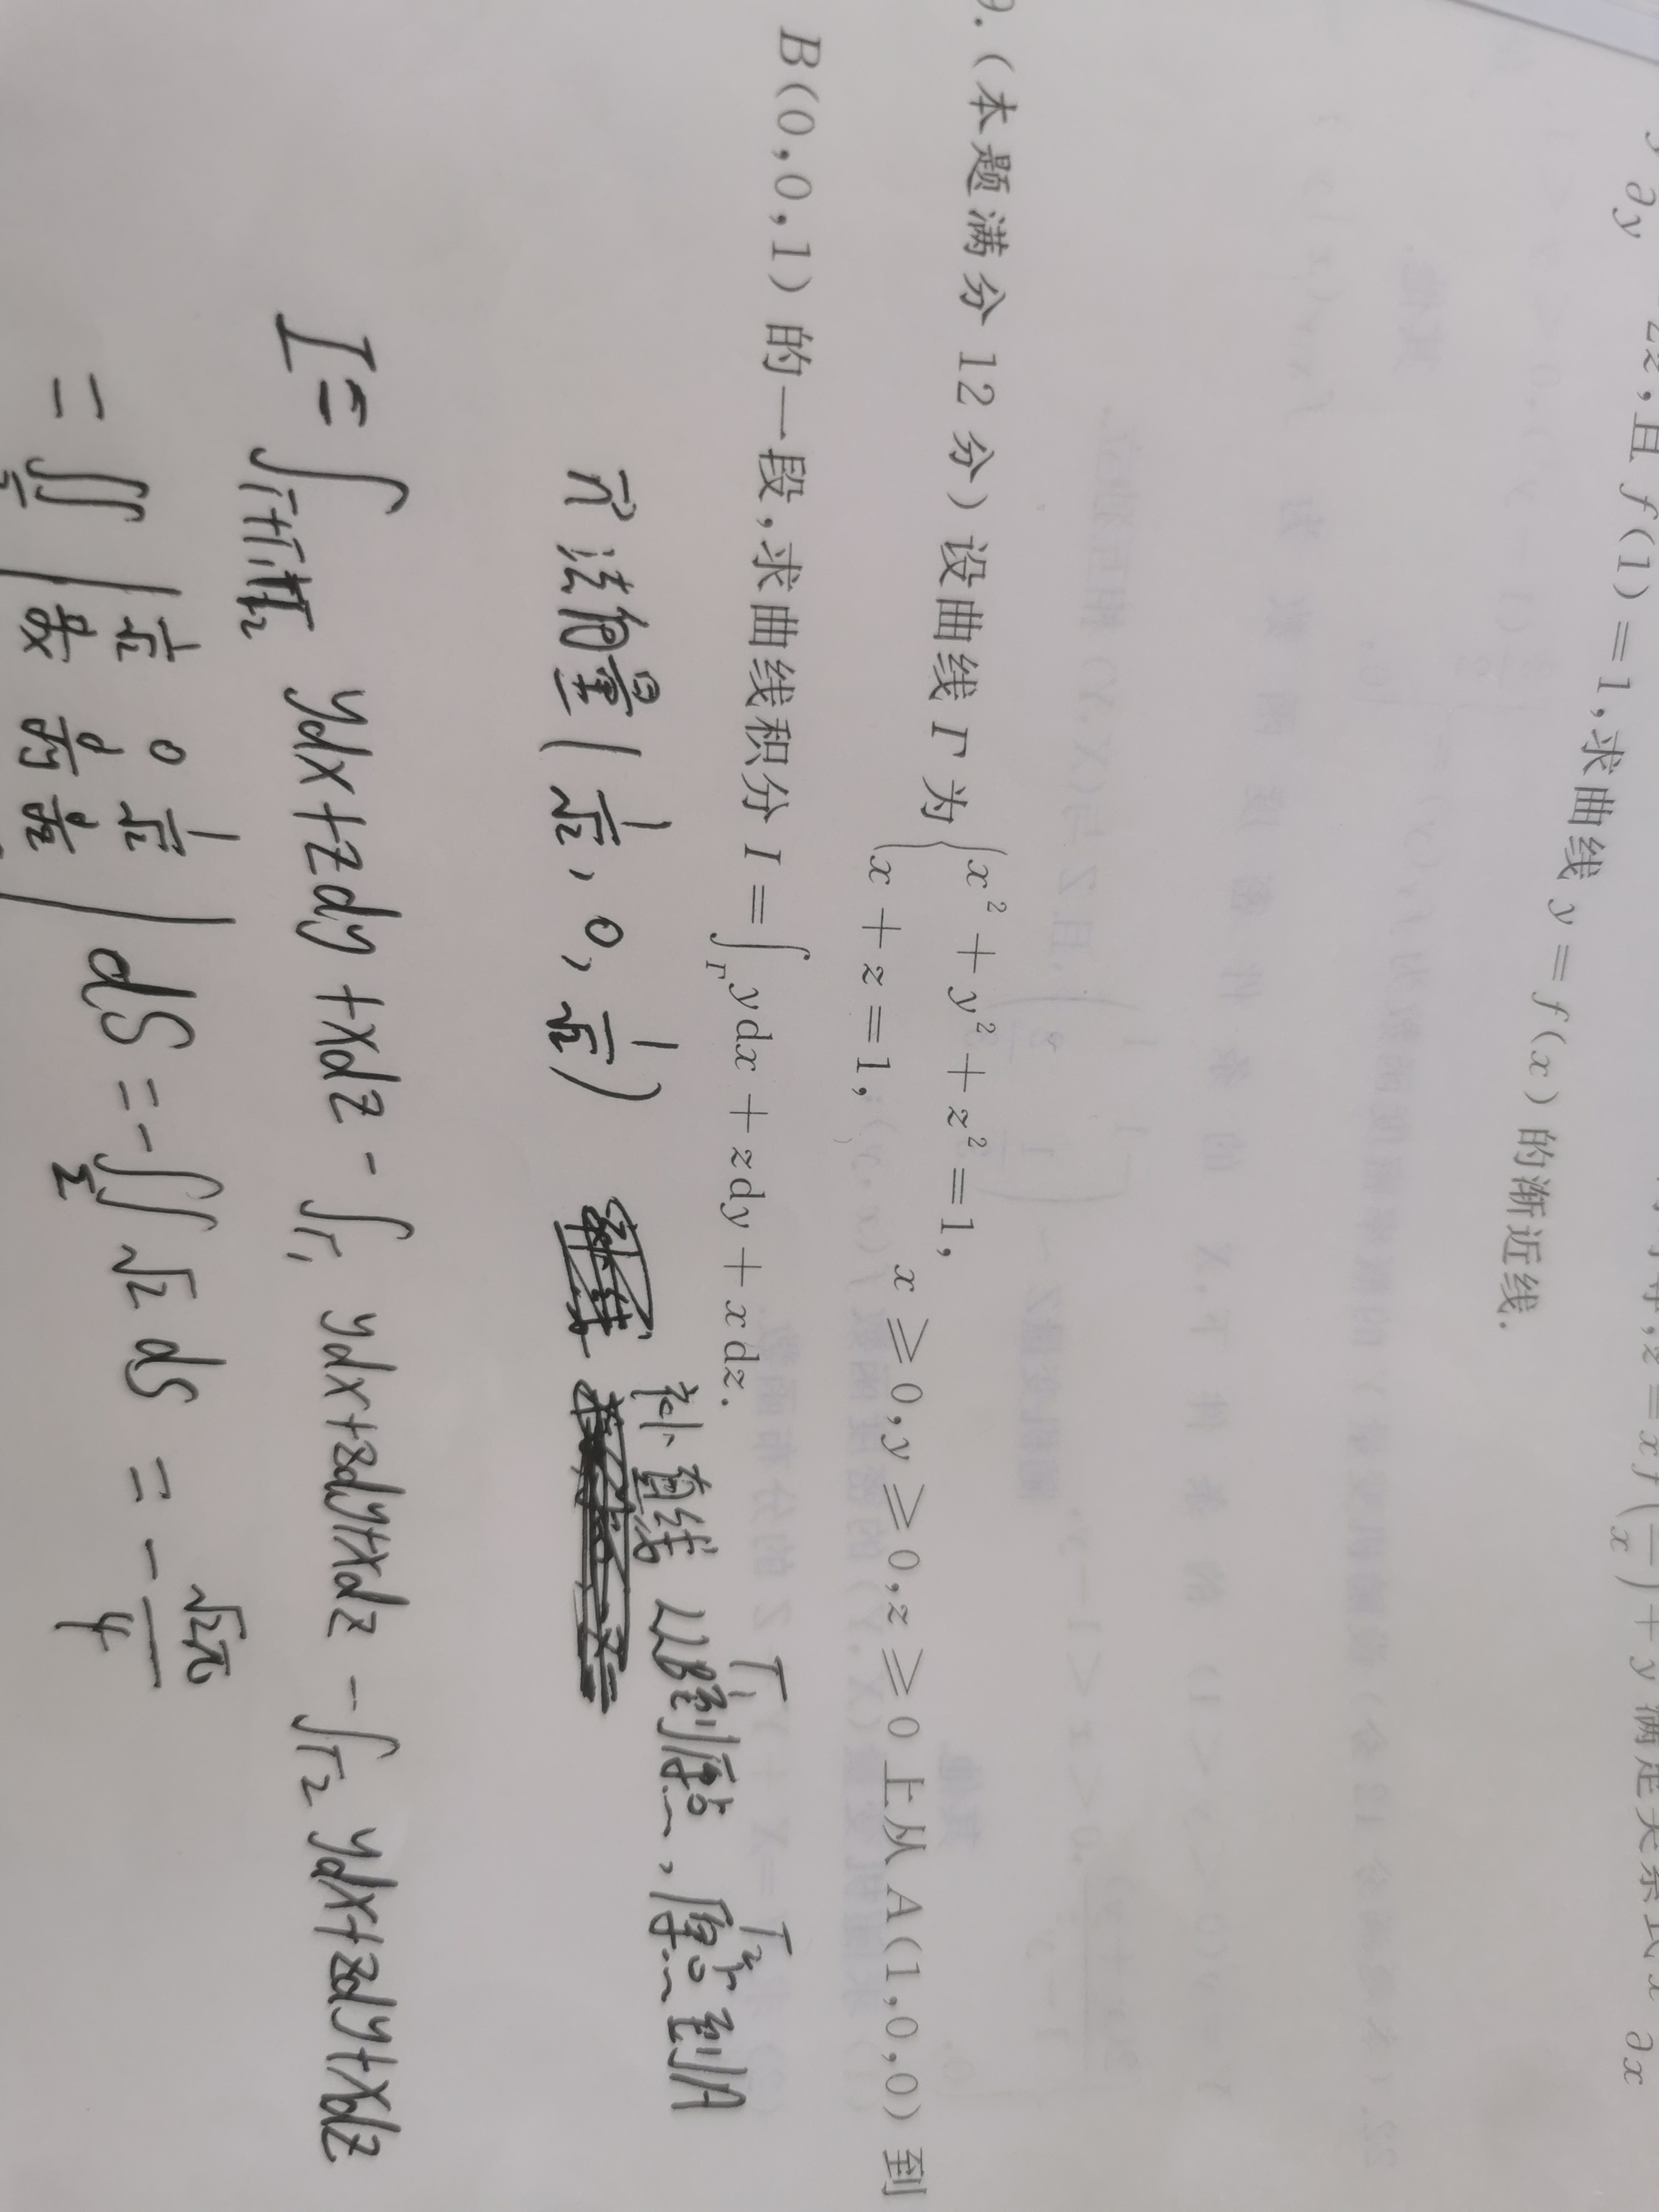 y ∂y 2z,且 f(1)=1,求曲线 y=f(x)的渐近线.
9.(本题满分 12 分)设曲线 Γ 为 { x²+y²+z²=1, x+z=1, x≥0,y≥0,z≥0 上从 A(1,0,0)到
B(0,0,1)的一段,求曲线积分 I=∫_Γ ydx+zdy+xdz.
补直线 Γ₁ 从B到原点,Γ₂ 原点到A
n⃗ 法向量(1/√2, 0, 1/√2)
I=∫_{Γ+Γ₁+Γ₂} ydx+zdy+xdz-∫_{Γ₁} ydx+zdy+xdz-∫_{Γ₂} ydx+zdy+xdz
=∬_Σ | 1/√2 0 1/√2
d/dx d/dy d/dz | dS=-∬_Σ √2 dS=-√2π/4